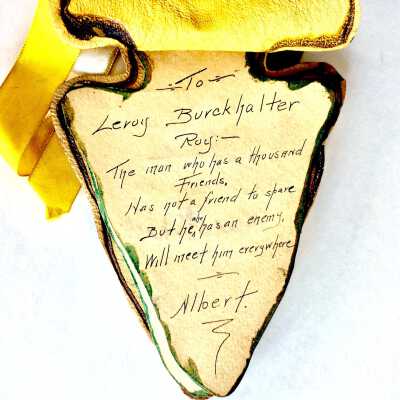 To
Leroy Burckhalter
Roy:—
The man who has a thousand
Friends,
Has not a friend to spare
But he, has an enemy,
Will meet him everywhere
Albert.